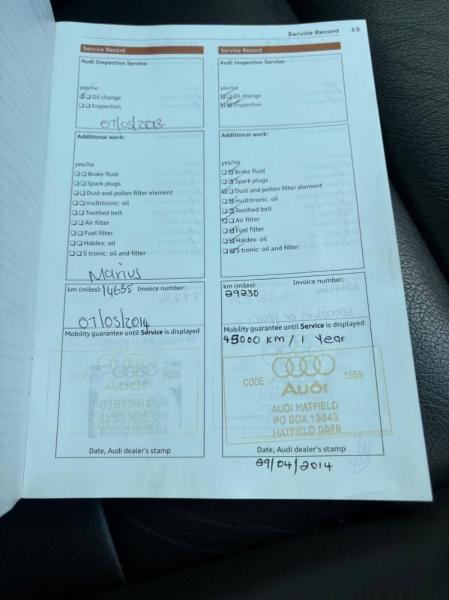 Service Record 15
Service Record
Audi Inspection Service:
yes/no
Oil change
Inspection
07/05/2013
Additional work:
yes/no
Brake fluid
Spark plugs
Dust and pollen filter element
multitronic: oil
Toothed belt
Air filter
Fuel filter
Haldex: oil
S tronic: oil and filter
Marius
km (miles): 14655 Invoice number:
07/05/2014
Mobility guarantee until Service is displayed
CODE
Audi
Date, Audi dealer's stamp
Service Record
Audi Inspection Service:
yes/no
Oil change
Inspection
Additional work:
yes/no
Brake fluid
Spark plugs
Dust and pollen filter element
multitronic: oil
Toothed belt
Air filter
Fuel filter
Haldex: oil
S tronic: oil and filter
km (miles): Invoice number:
29230
Mobility guarantee until Service is displayed
45000 km / 1 Year
CODE 1659
Audi
AUDI HATFIELD
PO BOX 13643
HATFIELD 0028
Date, Audi dealer's stamp
29/04/2014